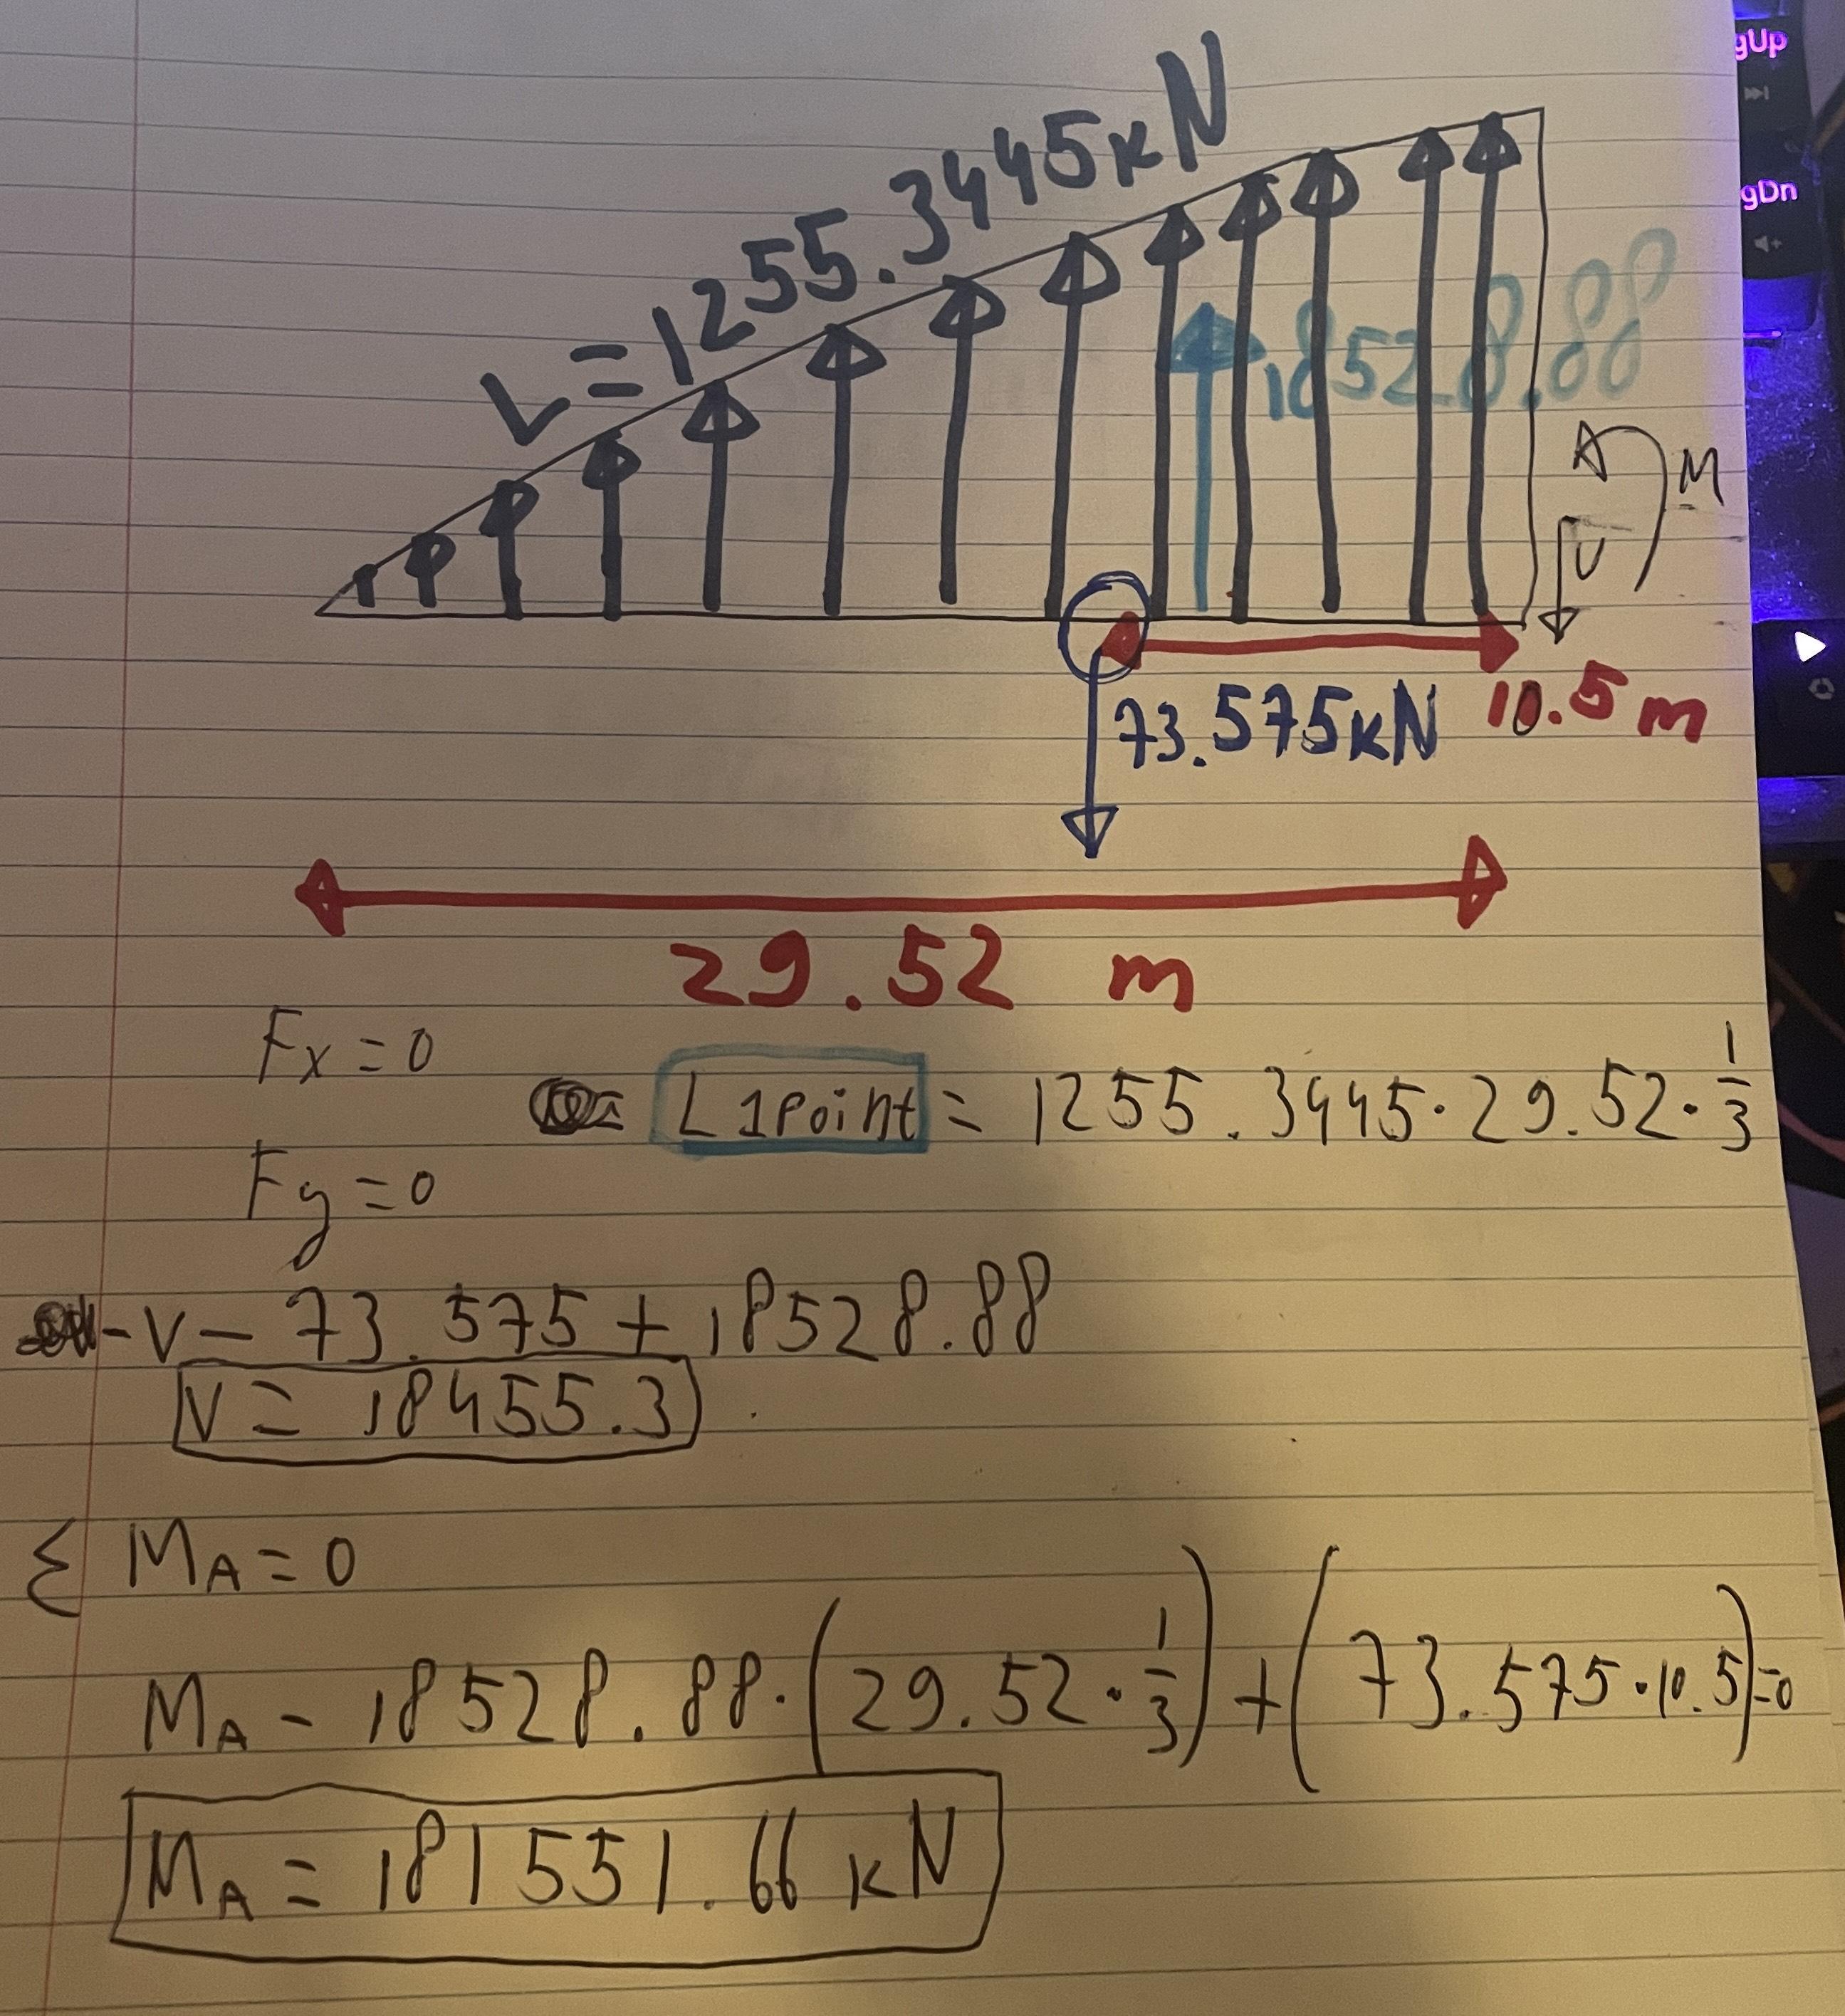 gUp
gDn
L=1255.3445kN
18528.88
A
M
V
73.575kN
10.5 m
29.52 m
Fx = 0
= L1Point = 1255.3445·29.52·1/3
Fy = 0
-V- 73.575 + 18528.88
V = 18455.3
Σ MA = 0
MA - 18528.88·(29.52·1/3)+(73.575·10.5)=0
MA = 181551.66 kN